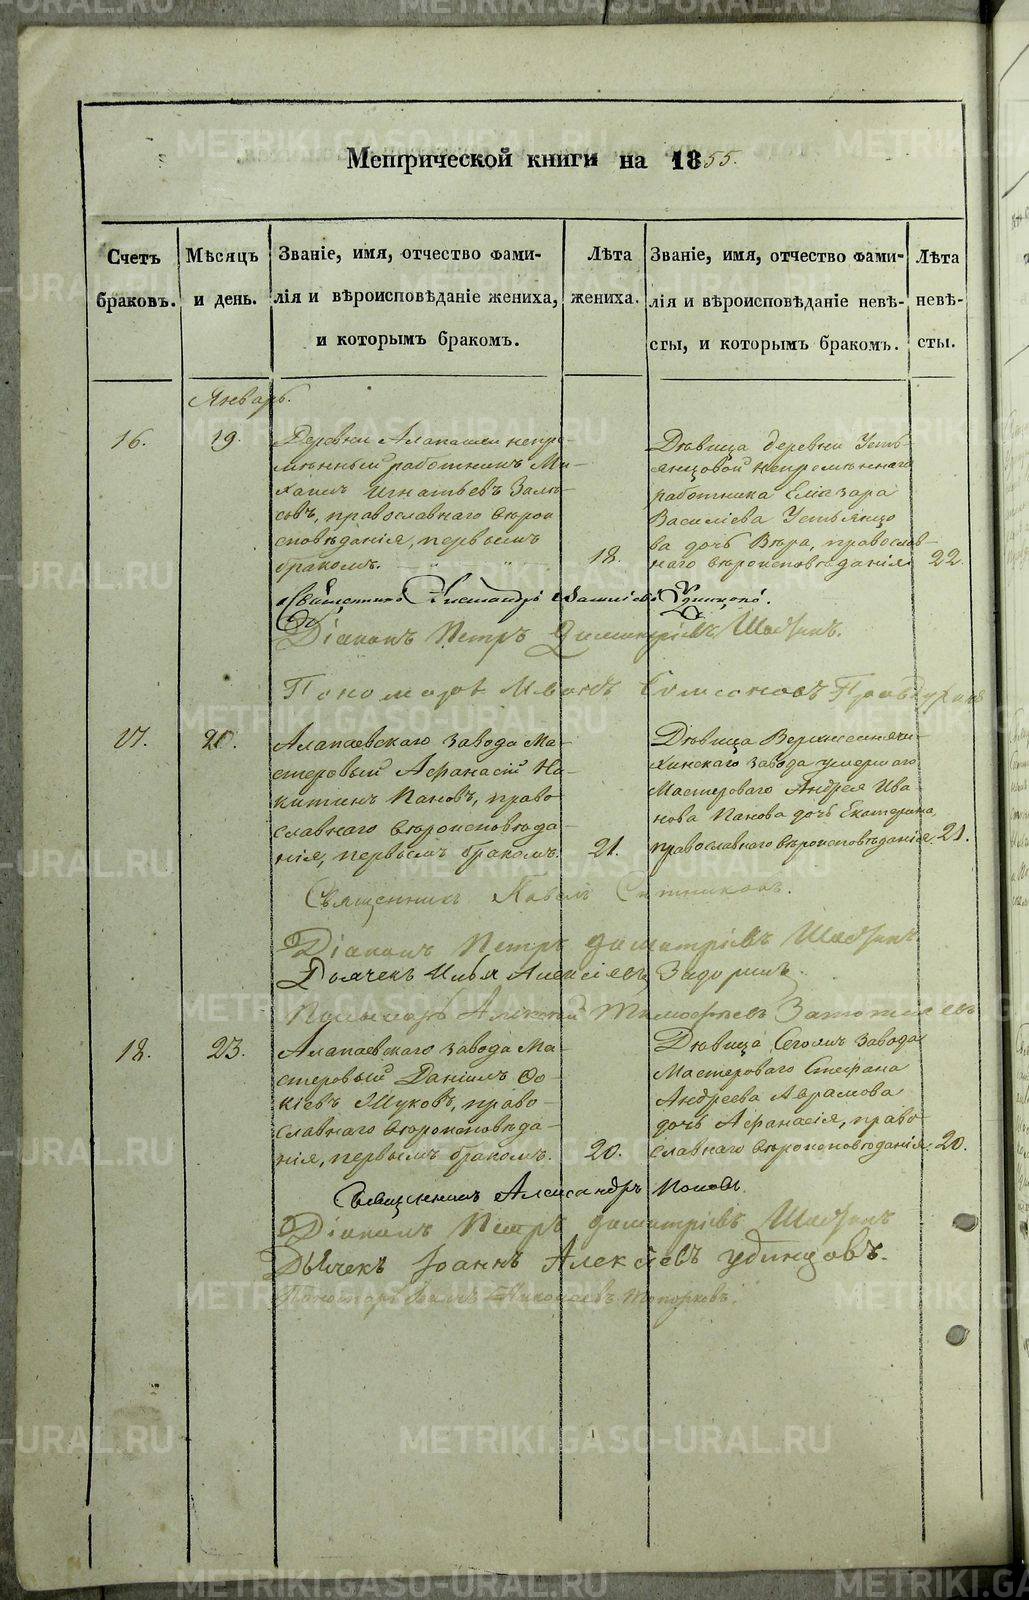 Метрической книги на 1855.
Счетъ браковъ.
Мѣсяцъ и день.
Званіе, имя, отчество фами-
лія и вѣроисповѣданіе жениха,
и которымъ бракомъ.
Лѣта жениха.
Званіе, имя, отчество фами-
лія и вѣроисповѣданіе невѣ-
сты, и которымъ бракомъ.
Лѣта невѣ-
сты.
Январь.
16.
19.
Деревни Алапаихи непре-
мѣнный работникъ Ми-
хаилъ Игнатьевъ
православнаго вѣрои
сповѣданія, первымъ
бракомъ.
18.
Дѣвица деревни Усть-
янцовой непремѣннаго
работника Еліазара
Василіева Устьянцо
ва дочь Вѣра, православ-
наго вѣроисповѣданія
22.
Священникъ Удинцовъ.
Діаконъ Петръ Димитріевъ
Пономарь Иванъ
17.
20.
Алапаевскаго завода Ма-
стеровый Афанасій Ни-
китинъ Пановъ, право
славнаго вѣроисповѣда-
нія, первымъ бракомъ.
21.
Дѣвица Верхнесинячи-
хинскаго завода умершаго
Мастероваго Андрея Ива
нова Панова дочь Екатерина,
православнаго вѣроисповѣданія.
21.
Священникъ Павелъ Ситниковъ.
Діаконъ Петръ Димитріевъ
Дьячекъ Илья Алексіевъ Задоринъ
Пономарь Алексѣй Тимофѣевъ
18.
23.
Алапаевскаго завода Ма-
стеровый Даніилъ Фо-
кіевъ Жуковъ, право-
славнаго вѣроисповѣда-
нія, первымъ бракомъ.
20.
Дѣвица, Сегожъ завода
Мастероваго Стефана
Андреева Аврамова
дочь Афанасія, право
славнаго вѣроисповѣданія.
20.
Священникъ Александръ Поповъ
Діаконъ Петръ Димитріевъ
Дьячекъ Іоаннъ Алексѣевъ Удинцовъ.
Пономарь Николаевъ Топорковъ.
METRIKI.GASO-URAL.RU